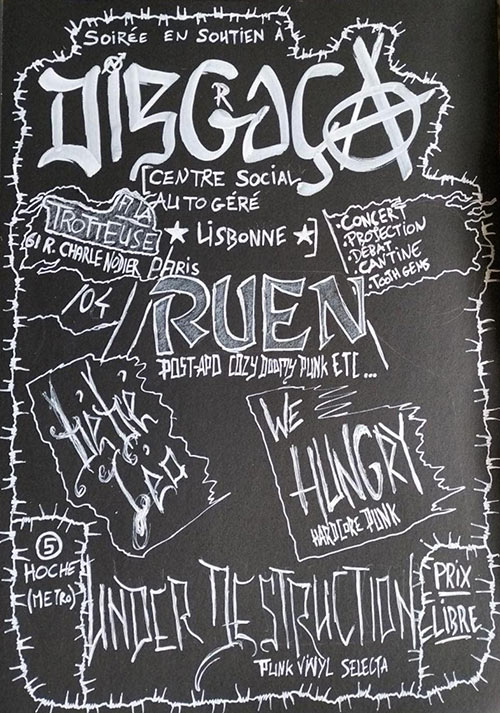 SOIRÉE EN SOUTIEN À
DISGRAÇA
[CENTRE SOCIAL
AUTOGÉRÉ
★ LISBONNE ★]
À LA
TROTTEUSE
61 R. CHARLE NODIER PARIS
/04
.CONCERT
.PROJECTION
.DÉBAT
.CANTINE
.TOOTH GEMS
RUEN
POST-APO COZY DOOMY PUNK ETC...
WE
HUNGRY
HARDCORE PUNK
5
HOCHE
(METRO)
UNDER DESTRUCTION
PUNK VINYL SELECTA
PRIX
LIBRE